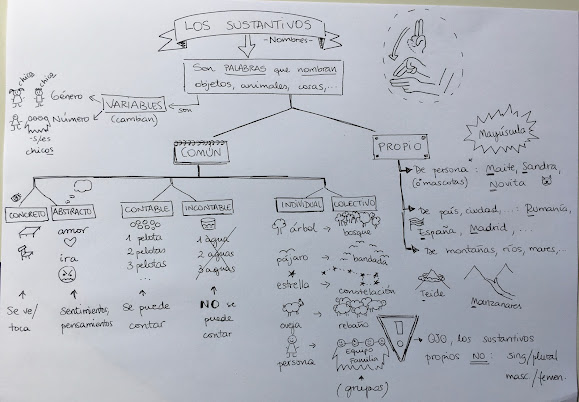 LOS SUSTANTIVOS
-Nombres-
Son PALABRAS que nombran
objetos, animales, cosas,...
son
VARIABLES
(cambian)
chico
chica
Género
Número
-s/es
chicos
COMÚN
PROPIO
Mayúscula
De persona : Maite, Sandra,
(o mascotas) Novita
De país, ciudad,...: Rumanía,
España, Madrid, ...
De montañas, ríos, mares,...
Teide
Manzanares
CONCRETO
ABSTRACTO
amor
ira
Se ve/
toca
Sentimientos,
pensamientos
CONTABLE
1 pelota
2 pelotas
3 pelotas
...
Se puede
contar
INCONTABLE
1 agua
2 aguas
3 aguas
NO se
puede
contar
INDIVIDUAL
COLECTIVO
árbol → bosque
pájaro → bandada
estrella → constelación
oveja → rebaño
persona → Equipo
Familia
(grupos)
! OJO, los sustantivos
propios NO: sing/plural
masc./femen.